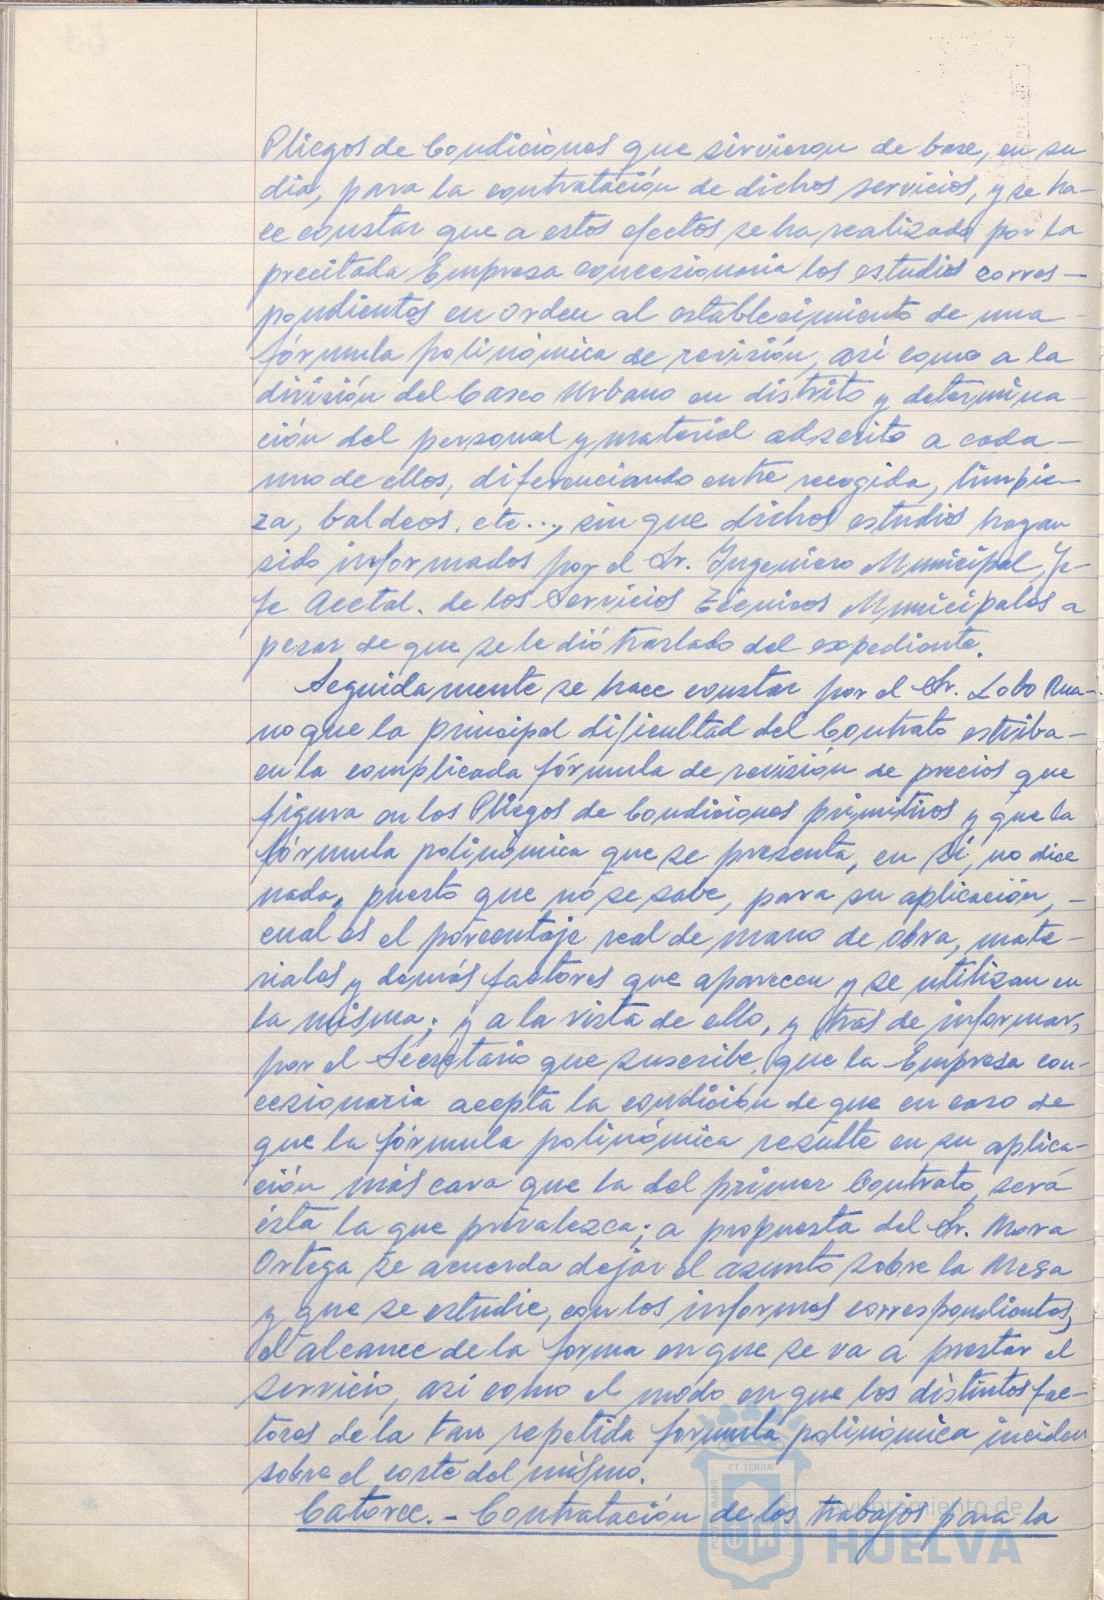 Pliegos de Condiciones que sirvieron de base, en su
dia, para la contratación de dichos servicios, y se ha-
ce constar que a estos efectos se ha realizado por la
precitada Empresa concesionaria los estudios corres-
pondientes en orden al establecimiento de una
fórmula polinómica de revisión, asi como a la
división del Casco Urbano en distrito y determina-
ción del personal y material adscrito a cada-
uno de ellos, diferenciando entre recogida, limpie-
za, baldeos, etc..., sin que dichos estudios hayan
sido informados por el Sr. Ingeniero Municipal, Je-
fe Acctal. de los Servicios Técnicos Municipales a
pesar de que se le dió traslado del expediente.
Seguidamente se hace constar por el Sr. Lobo Rua-
no que la principal dificultad del Contrato estriba-
en la complicada fórmula de revisión de precios que
figura en los Pliegos de Condiciones primitivos y que la
fórmula polinómica que se presenta, en sí, no dice
nada, puesto que no se sabe, para su aplicación,-
cual es el porcentaje real de mano de obra, mate-
riales y demás factores que aparecen y se utilizan en
la misma; y a la vista de ello, y tras de informar,
por el Secretario que suscribe, que la Empresa con-
cesionaria acepta la condición de que en caso de
que la fórmula polinómica resulte en su aplica-
ción más cara que la del primer Contrato, será
ésta la que prevalezca; a propuesta del Sr. Mora
Ortega se acuerda dejar el asunto sobre la Mesa
y que se estudie, con los informes correspondientes,
el alcance de la forma en que se va a prestar el
servicio, asi como el modo en que los distintos fac-
tores de la tan repetida formula polinómica inciden
sobre el coste del mismo.
Catorce.- Contratación de los trabajos para la
Ayuntamiento de
HUELVA